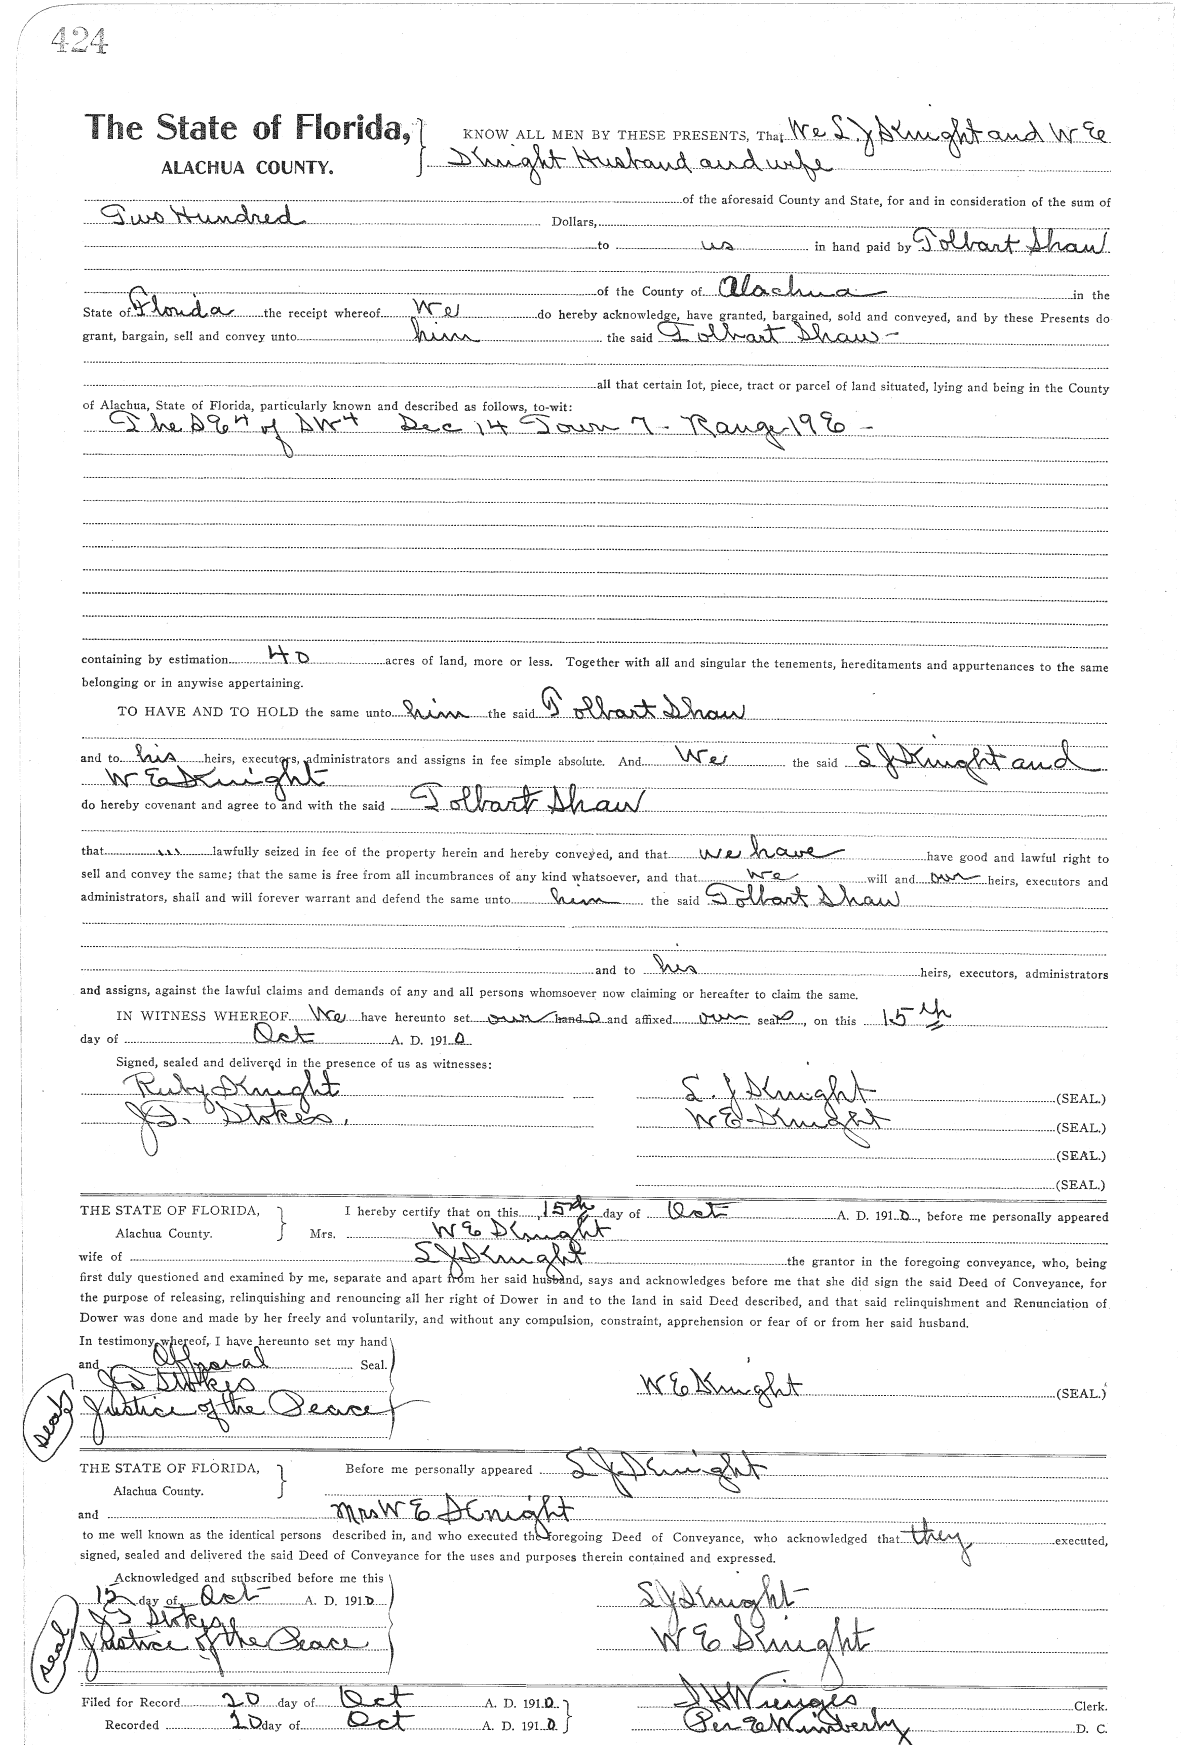 424
The State of Florida, KNOW ALL MEN BY THESE PRESENTS, That We S. J Knight and W E
ALACHUA COUNTY. Knight Husband and wife
of the aforesaid County and State, for and in consideration of the sum of
Two Hundred Dollars,
to us in hand paid by Tolbart Shaw
of the County of Alachua in the
State of Florida the receipt whereof We do hereby acknowledge, have granted, bargained, sold and conveyed, and by these Presents do
grant, bargain, sell and convey unto him the said Tolbart Shaw -
all that certain lot, piece, tract or parcel of land situated, lying and being in the County
of Alachua, State of Florida, particularly known and described as follows, to-wit:
The SE4 of SW4 Sec 14 Town 7 - Range 19E -
containing by estimation 40 acres of land, more or less. Together with all and singular the tenements, hereditaments and appurtenances to the same
belonging or in anywise appertaining.
TO HAVE AND TO HOLD the same unto him the said Tolbart Shaw
and to his heirs, executors, administrators and assigns in fee simple absolute. And We the said S J Knight and
W E Knight
do hereby covenant and agree to and with the said Tolbart Shaw
that lawfully seized in fee of the property herein and hereby conveyed, and that we have have good and lawful right to
sell and convey the same; that the same is free from all incumbrances of any kind whatsoever, and that we will and our heirs, executors and
administrators, shall and will forever warrant and defend the same unto him the said Tolbart Shaw
and to his heirs, executors, administrators
and assigns, against the lawful claims and demands of any and all persons whomsoever now claiming or hereafter to claim the same.
IN WITNESS WHEREOF We have hereunto set our hands and affixed our seals, on this 15th
day of Oct A. D. 1910
Signed, sealed and delivered in the presence of us as witnesses:
Ruby Knight S. J Knight (SEAL.)
J S. Stokes. W E Knight (SEAL.)
(SEAL.)
(SEAL.)
THE STATE OF FLORIDA, I hereby certify that on this 15th day of Oct A. D. 1910, before me personally appeared
Alachua County. Mrs. W E Knight
wife of S J Knight the grantor in the foregoing conveyance, who, being
first duly questioned and examined by me, separate and apart from her said husband, says and acknowledges before me that she did sign the said Deed of Conveyance, for
the purpose of releasing, relinquishing and renouncing all her right of Dower in and to the land in said Deed described, and that said relinquishment and Renunciation of
Dower was done and made by her freely and voluntarily, and without any compulsion, constraint, apprehension or fear of or from her said husband.
In testimony whereof, I have hereunto set my hand
and Official Seal.
J S Stokes W E Knight (SEAL.)
Seal Justice of the Peace
THE STATE OF FLORIDA, Before me personally appeared S J Knight
Alachua County.
and Mrs W E Knight
to me well known as the identical persons described in, and who executed the foregoing Deed of Conveyance, who acknowledged that they executed,
signed, sealed and delivered the said Deed of Conveyance for the uses and purposes therein contained and expressed.
Acknowledged and subscribed before me this
15 day of Oct A. D. 1910 S J Knight
J S Stokes
Seal Justice of the Peace W E Knight
Filed for Record 20 day of Oct A. D. 1910 S H Wienges Clerk.
Recorded 20 day of Oct A. D. 1910 Per E Wimberly D. C.